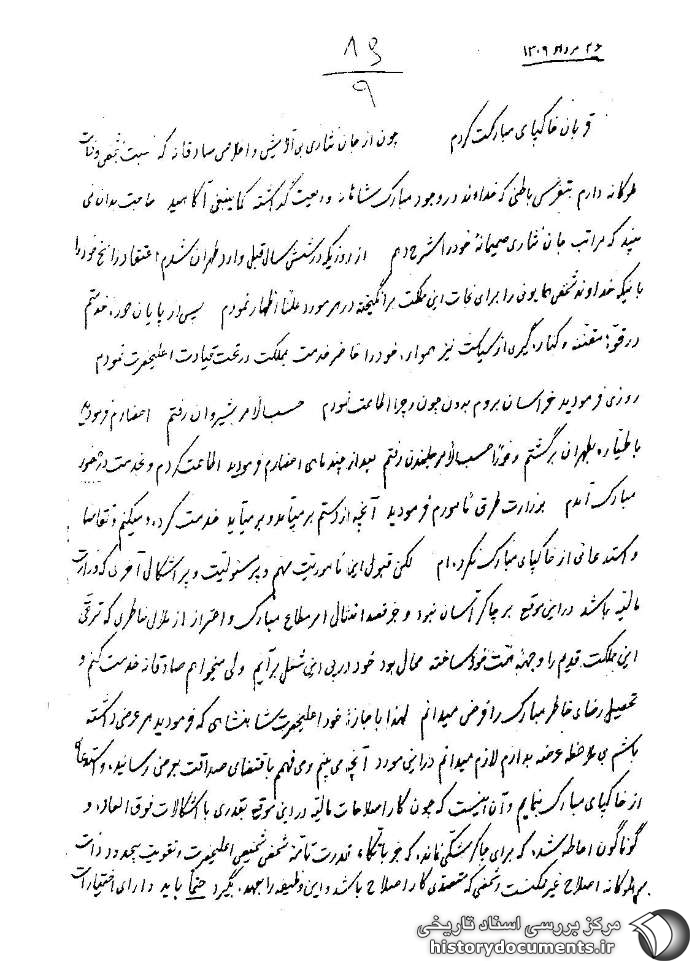 ۲۶ مرداد ۱۳۰۹
۸۹
۹
قربان خاکپای مبارکت گردم چون از جان نثاری بی آلایش و اخلاص صادقانه که نسبت بشخص و ذات
ملوکانه دارم بتفرس باطنی که خداوند در وجود مبارک شاهانه ودیعت گذاشته کماینبغی آگاهید حاجت بدان نمی
بینید که مراتب جان نثاری صمیمانه خود را شرح دهم از روزیکه در شش سال قبل وارد طهران شدم اعتقاد راسخ خود را
باینکه خداوند شخص همایون را برای نجات این مملکت برانگیخته در هر مورد علناً اظهار نمودم پس از پایان دوره خدمتم
در قوه مقننه و کناره گیری از سیاست نیز همواره خود را حاضر خدمت مملکت در تحت قیادت اعلیحضرت نمودم
روزی فرمودید خراسان بروم بدون چون و چرا اطاعت نمودم حسب الامر بشیروان رفتم احضارم فرمودید
با طیاره بطهران برگشتم و فوراً حسب الامر بلندن رفتم بعد از چند ماهی احضارم فرمودید اطاعت کردم و بخدمت در حضور
مبارک آمدم بوزارت طرق مأمورم فرمودید آنچه از دستم برمیآمد و برمیآید خدمت کرده و میکنم و تقاضا
و استدعائی از خاکپای مبارک نکرده ام لکن قبول این مأموریت مهم و پر مسئولیت و پر اشکال آخری که وزارت
مالیه باشد در این موقع بر چاکر آسان نبود و جز قصد امتثال امر مطاع مبارک و احتراز از ملال خاطری که ترقی
این مملکت قدیم را وجهه همت خود ساخته محال بود خود در پی این شغل برآیم ولی میخواهم صادقانه خدمت کنم و
تحصیل رضای خاطر مبارک را فرض میدانم لهذا با اجازه خود اعلیحضرت شاهنشاهی که فرمودید هر عرضی داشته
باشم بی ملاحظه عرضه بدارم لازم میدانم در این مورد آنچه می بینم و می فهمم باقتضای صداقت بعرض رسانیده و استدعائی
از خاکپای مبارک بنمایم و آن اینست که چون کار اصلاحات مالیه در این موقع بقدری با اشکالات فوق العاده و
گوناگون احاطه شده که برای چاکر شکی نمانده که جز باتکاء قدرت تامه شخص شخیص اعلیحضرت و تقویت بیحدود ذات
ملوکانه اصلاح غیر ممکنست و شخصی که متصدی کار اصلاح باشد و این وظیفه را بعهده بگیرد حتماً باید دارای اختیارات
مرکز بررسی اسناد تاریخی
historydocuments.ir